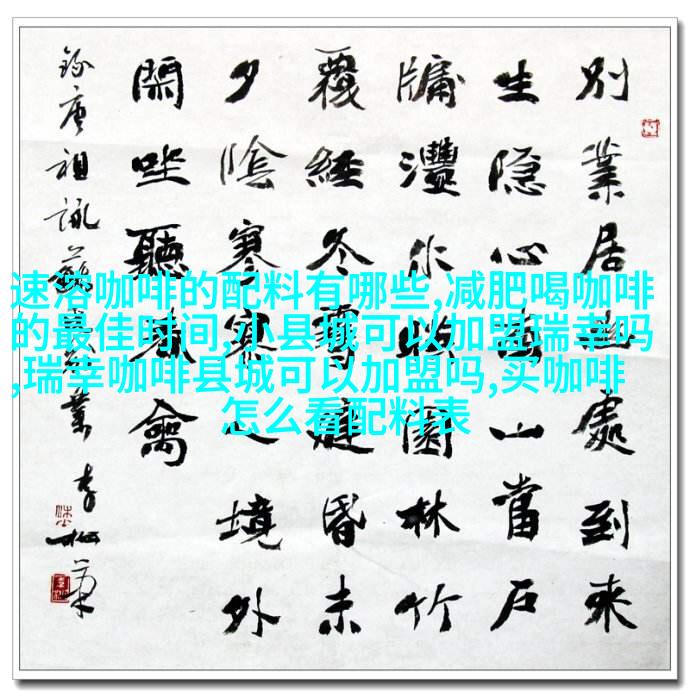 速溶咖啡的配料有哪些,减肥喝咖啡
的最佳时间,小县城可以加盟瑞幸吗
,瑞幸咖啡县城可以加盟吗,买咖啡
怎么看配料表
别業居幽處到来
生隐心南山當戶
牖灃水映園林竹
覆經冬雪庭昏未
夕陰寥寥人境外
閑坐聽春禽
錄唐祖詠蘇氏别業